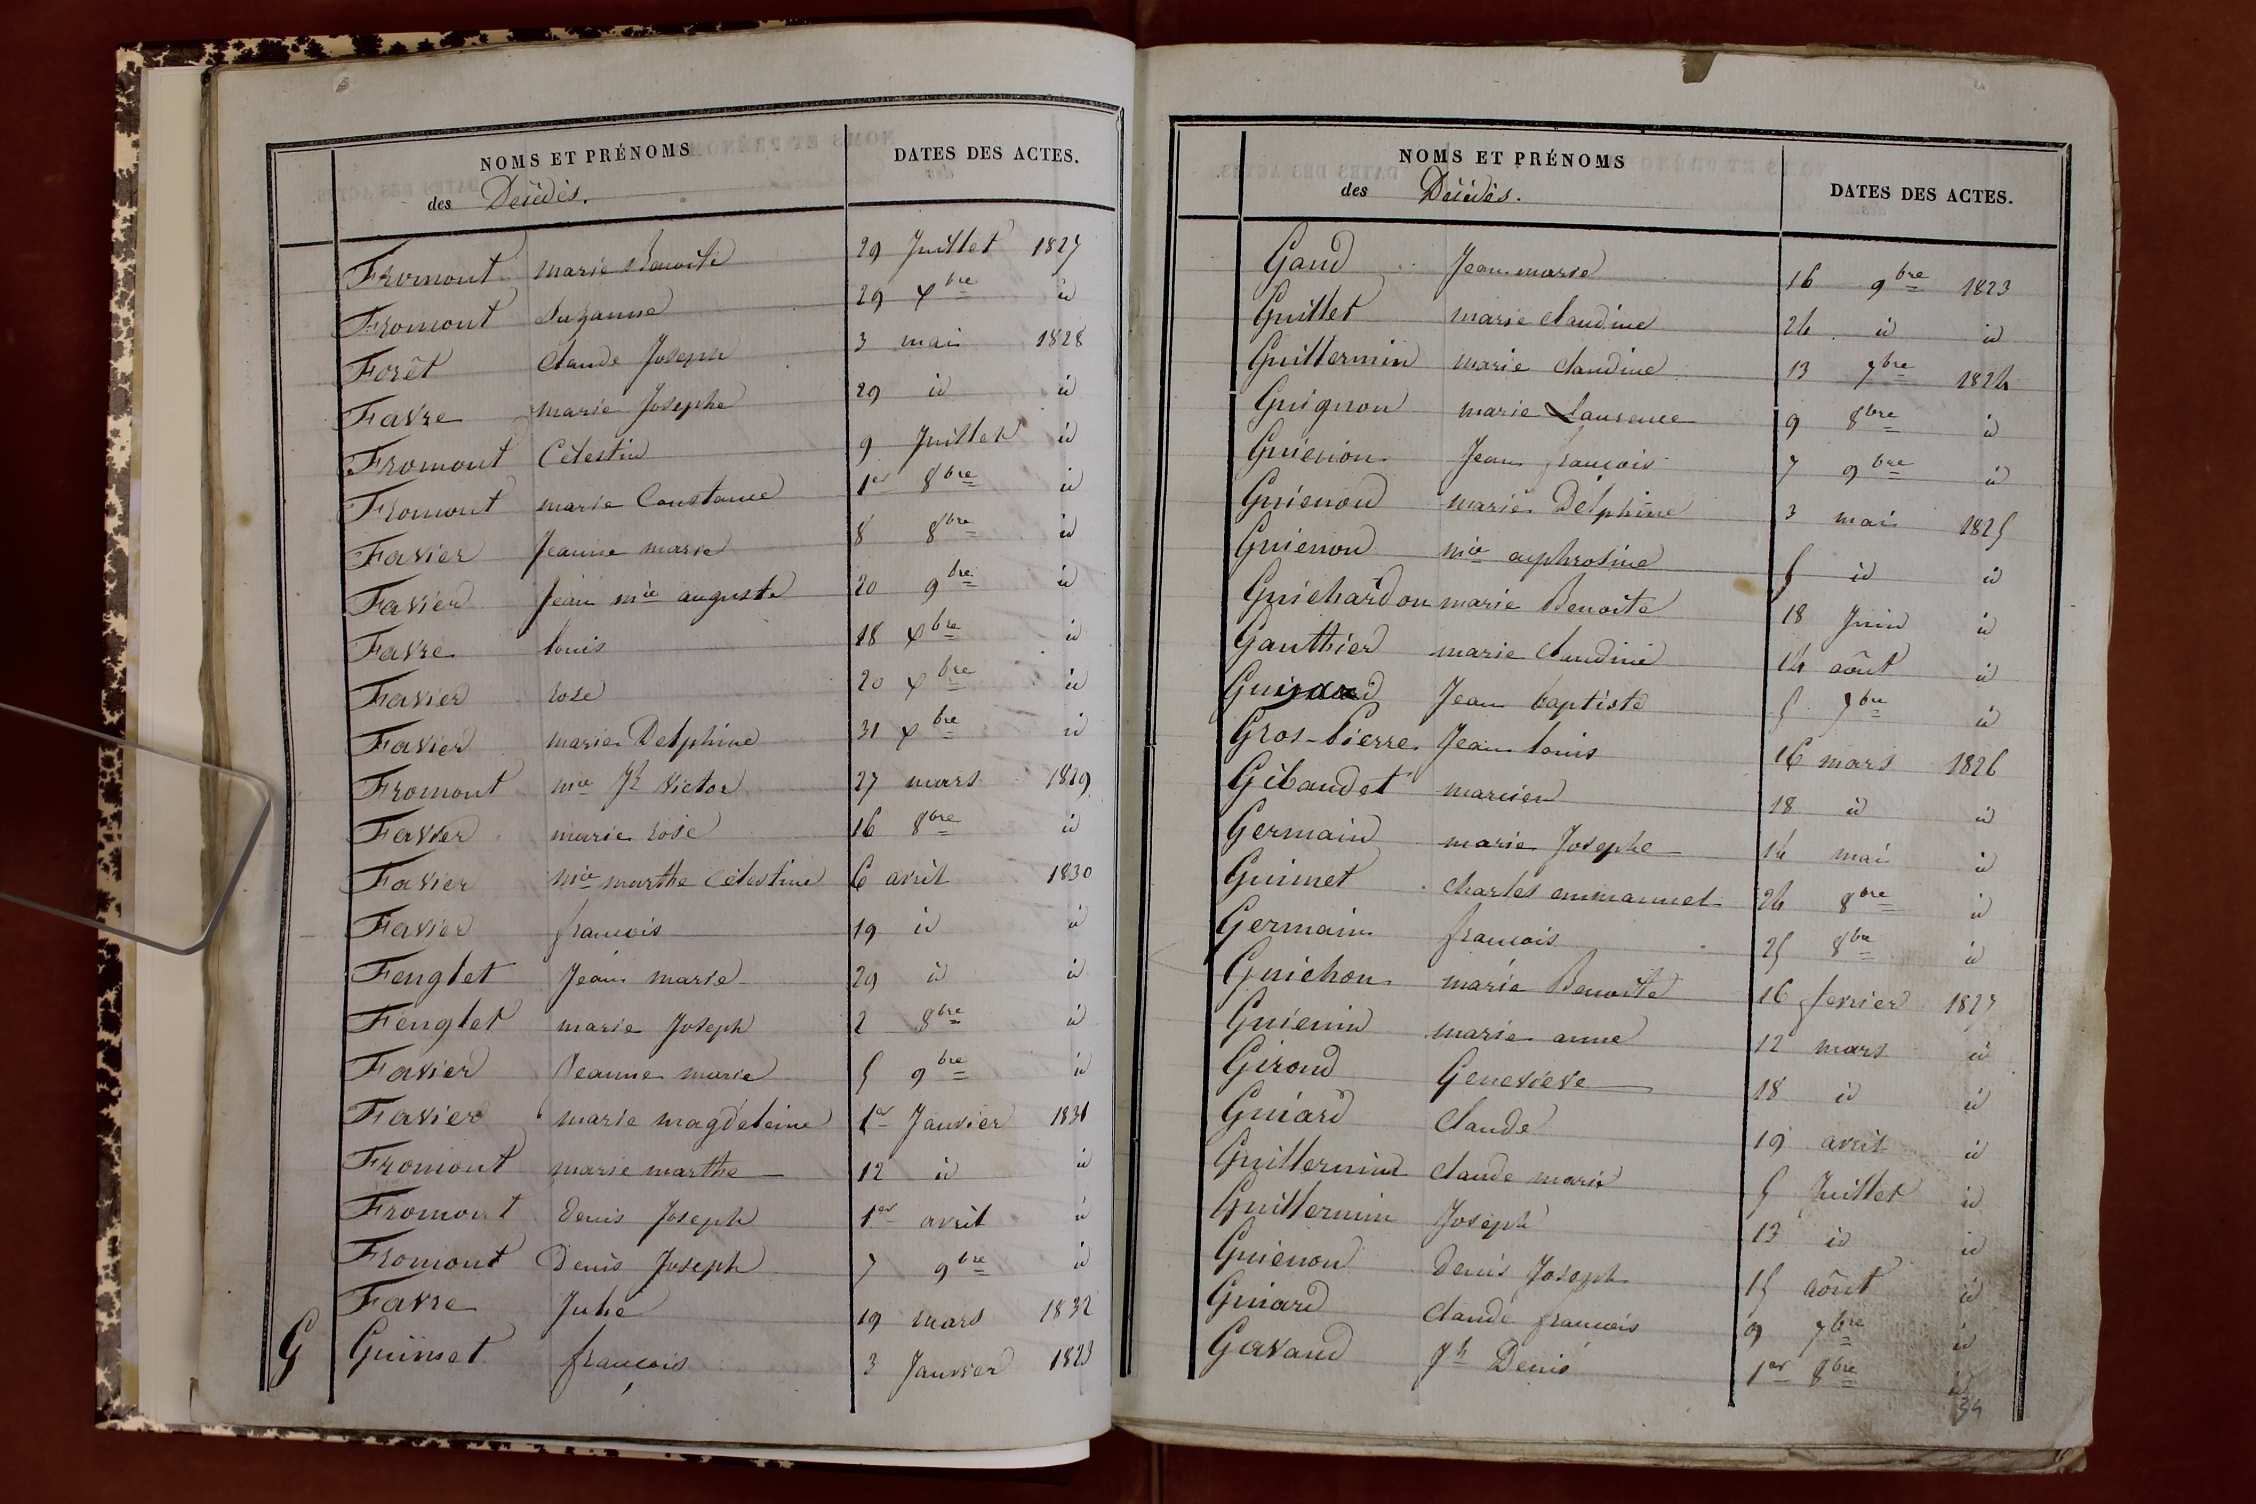 NOMS ET PRÉNOMS
des Décédés.
DATES DES ACTES.
Fromont marie Benoite 29 Juillet 1827
Fromont Suzanne 29 xbre id
Forêt Claude Joseph 3 mai 1828
Favre marie Josephe 29 id id
Fromont Célestin 9 Juillet id
Fromont marie Constance 1er 8bre id
Favier Jeanne marie 8 8bre id
Favier Jean mie auguste 20 9bre id
Favre louis 18 xbre id
Favier rose 20 xbre id
Favier marie Delphine 31 xbre id
Fromont mie Jh victor 27 mars 1829
Favier marie rose 16 8bre id
Favier mie marthe Célestine 6 avril 1830
Favier francois 19 id id
Fenglet Jean marie 29 id id
Fenglet marie Joseph 2 8bre id
Favier Jeanne marie 5 9bre id
Favier marie magdeleine 1er Janvier 1831
Fromont marie marthe 12 id id
Fromont denis Joseph 1er avril id
Fromont Denis Joseph 7 9bre id
Favre Julie 19 mars 1832
G Guimet francois 3 Janvier 1823
NOMS ET PRÉNOMS
des Décédés.
DATES DES ACTES.
Gaud Jean marie 16 9bre 1823
Guillet marie claudine 24 id id
Guillermin marie claudine 13 7bre 1824
Guignon marie Laurence 9 8bre id
Guienon Jean francois 7 9bre id
Guienon marie Delphine 3 mai 1825
Guienon mie euphrosine 5 id id
Guichardon marie Benoite 18 Juin id
Gauthier marie claudine 14 août id
Jean baptiste 5 7bre id
Gros-Pierre Jean louis 16 mars 1826
Gibaudet marien 18 id id
Germain marie Josephe 14 mai id
Guimet charles emmanuel 24 8bre id
Germain francois 25 8bre id
Guichon marie Benoite 16 fevrier 1827
Guienin marie anne 12 mars id
Giroud Genevieve 18 id id
Guiard Claude 19 avril id
Guillermin claude marie 5 Juillet id
Guillermin Joseph 13 id id
Guienon denis Joseph 15 août id
Guiard claude francois 9 7bre id
Gavand Jh Denis 1er 8bre id
34